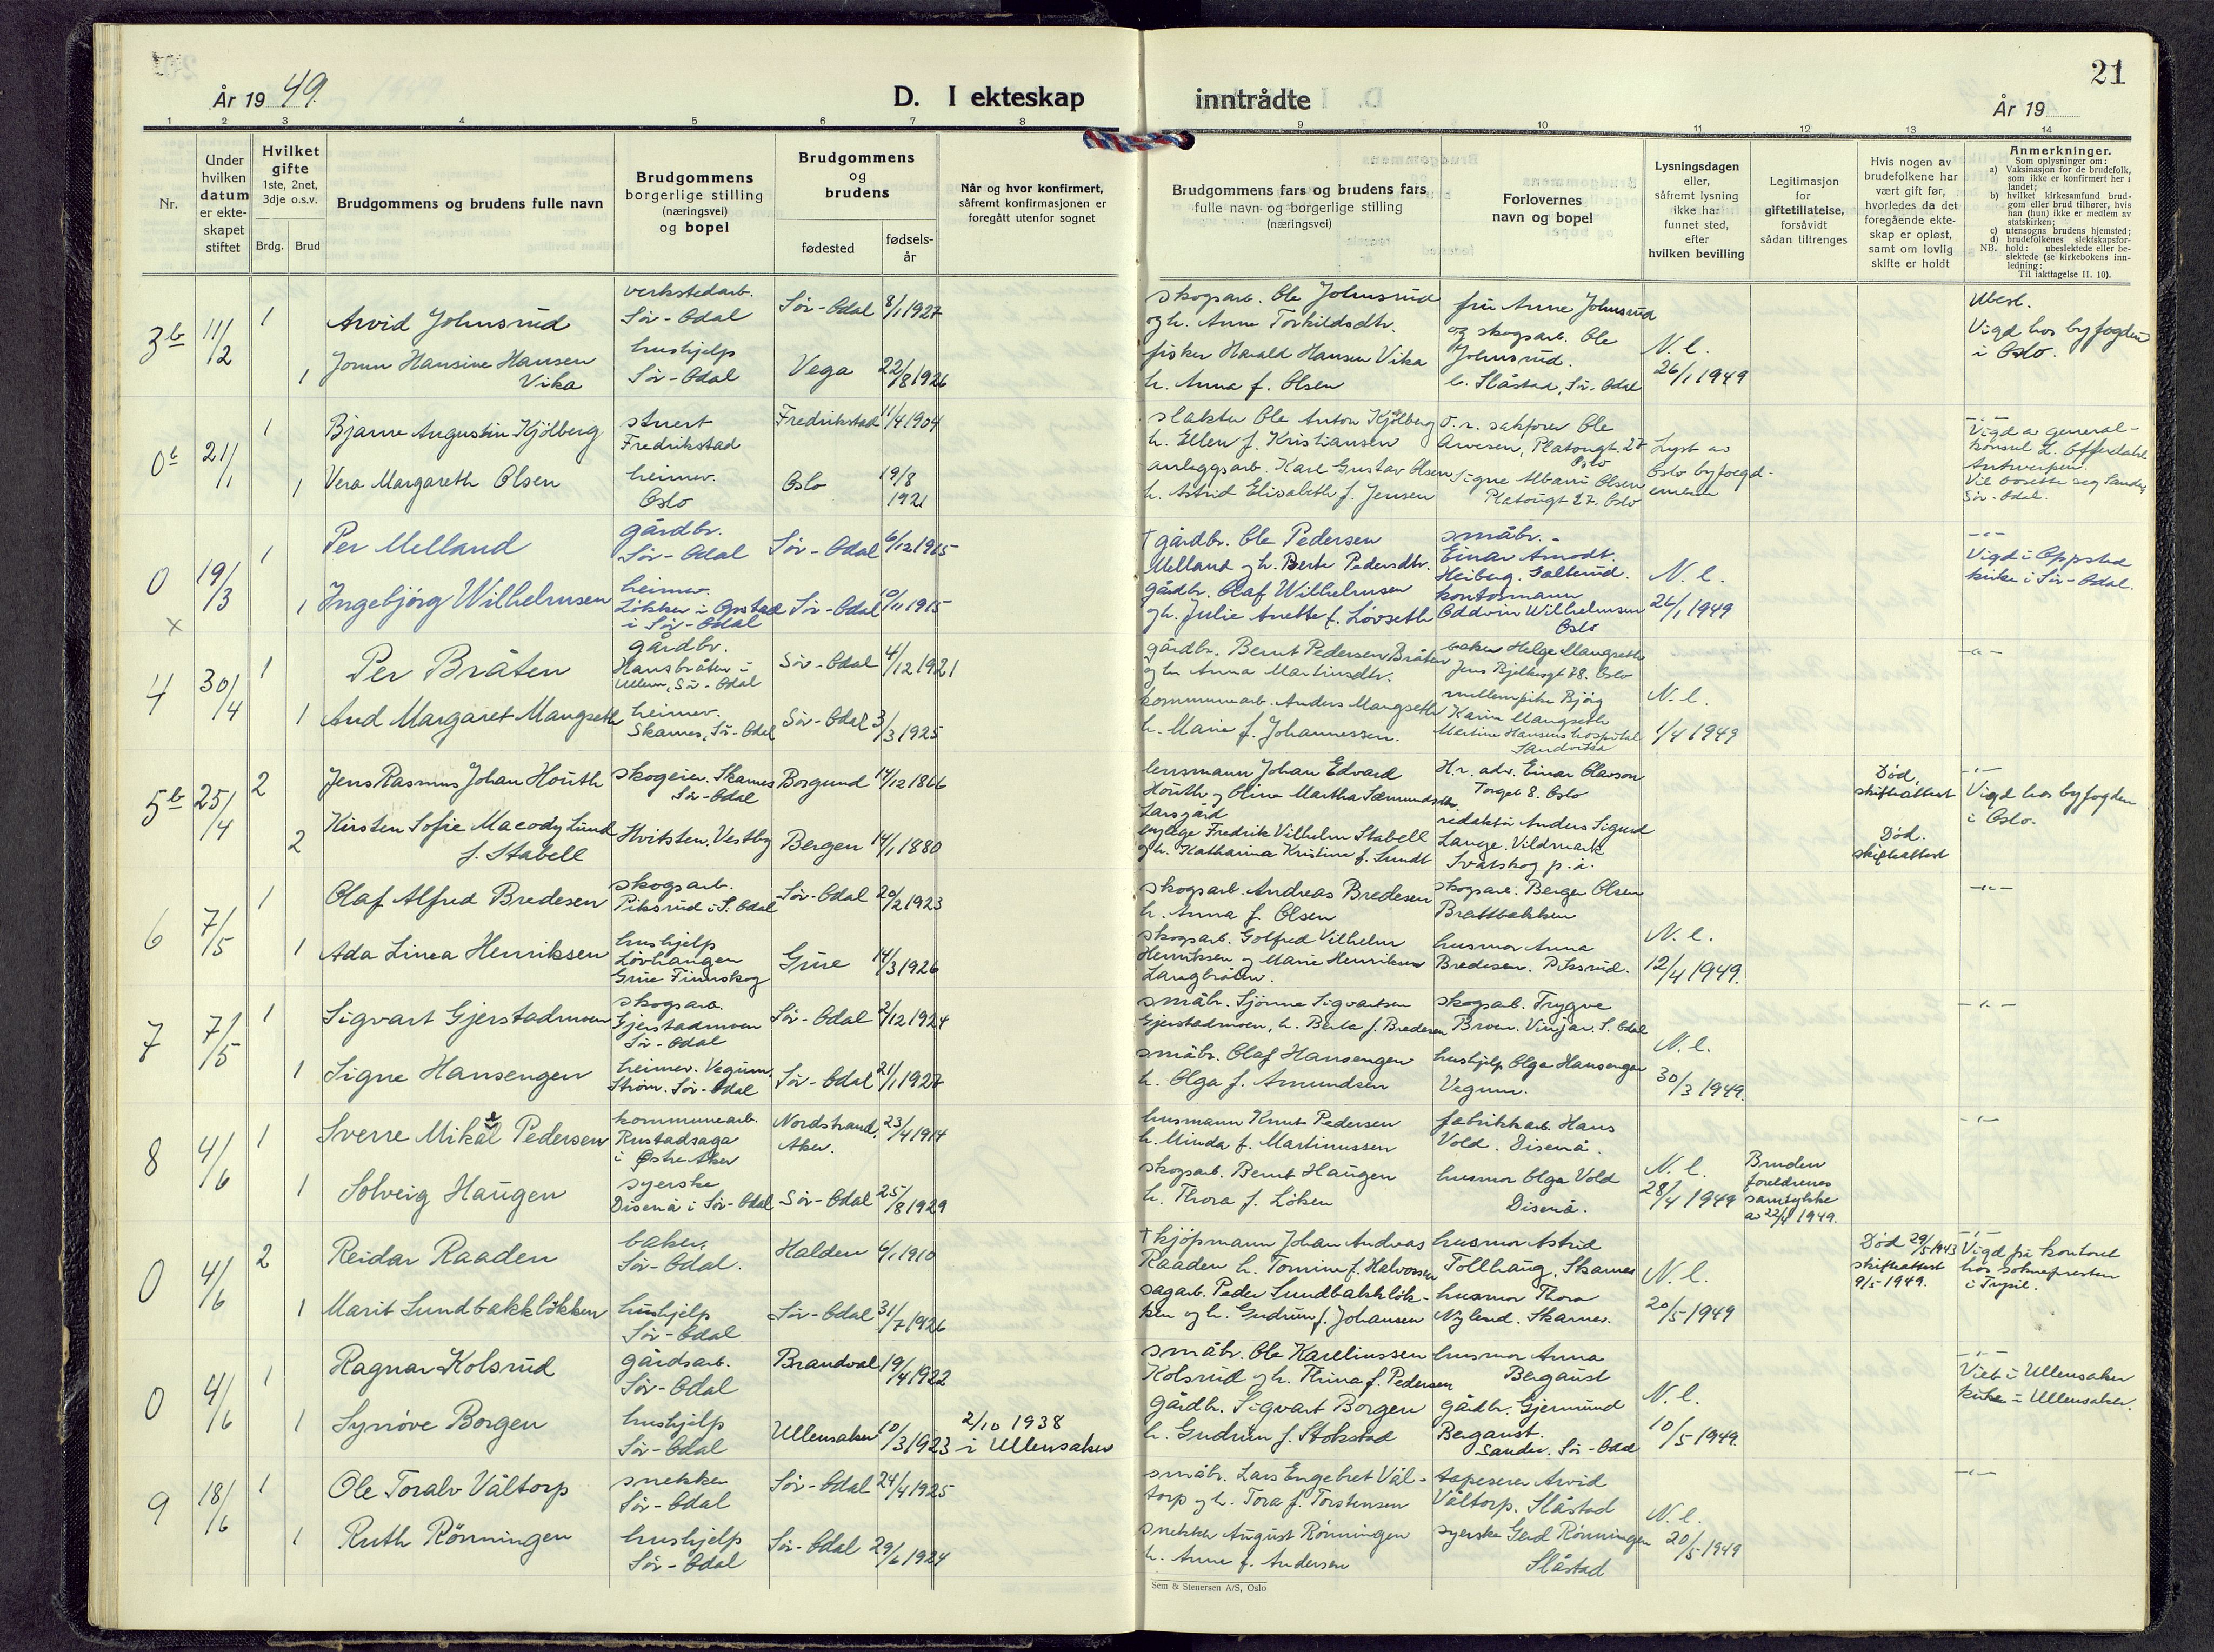 21
År 19 49.
D. I ekteskap
inntrådte
År 19
1 2 3 4 5 6 7 8 9 10 11 12 13 14
Nr.
Under hvilken datum er ekte-skapet stiftet
Hvilket gifte 1ste, 2net, 3dje o.s.v.
Brdg. Brud
Brudgommens og brudens fulle navn
Brudgommens borgerlige stilling (næringsvei) og bopel
Brudgommens og brudens
fødested
fødsels-år
Når og hvor konfirmert, såfremt konfirmasjonen er foregått utenfor sognet
Brudgommens fars og brudens fars fulle navn og borgerlige stilling (næringsvei)
Forlovernes navn og bopel
Lysningsdagen eller, såfremt lysning ikke har funnet sted, efter hvilken bevilling
Legitimasjon for giftetillatelse, forsåvidt sådan tiltrenges
Hvis nogen av brudefolkene har vært gift før, hvorledes da det foregående ekte-skap er opløst, samt om lovlig skifte er holdt
Anmerkninger.
Som oplysninger om:
a) Vaksinasjon for de brudefolk, som ikke er konfirmert her i landet;
b) hvilket kirkesamfund brud-gom eller brud tilhører, hvis han (hun) ikke er medlem av statskirken;
c) utensogns brudens hjemsted;
d) brudefolkenes slektskapsfor-hold: ubeslektede eller be-slektede (se kirkebokens inn-ledning:
NB. Til iakttagelse II. 10).
3b 11/2 1
Arvid Johnsrud
verkstedarb.
Sør-Odal
Sør-Odal 8/1 1927
skogsarb. Ole Johnsrud
og h. Anne Torkildsdtr.
fru Anne Johnsrud
og skogsarb. Ole
Johnsrud.
b. Slåstad, Sør-Odal
N.l.
26/1 1949
Ubesl.
Vigd hos byfogden
i Oslo.
1 Jorun Hansine Hansen
Vika
hushjelp
Sør-Odal
Vega 22/8 1926
fisker Harald Hansen Vika
h. Anna f. Olsen
0b 21/1 1
Bjarne Augustin Kjölberg
stuert
Fredrikstad
Fredrikstad 11/4 1904
slakter Ole Anton Kjölberg
h. Ellen f. Kristiansen
O.r. sakfører Ole
Arvesen, Platougt. 27
Oslo
Lyst av
Oslo byfogd-
embete
Vigd av general-
konsul L. Offerdahl
Antwerpen.
Vil bosette seg Sander
Sør-Odal.
1 Vera Margareth Olsen
heimev.
Oslo
Oslo 19/8 1921
anleggsarb. Karl Gustav Olsen
h. Astrid Elisabeth f. Jensen
Signe Olsen
Platougt 27. Oslo
0 19/3 1
x
Per Melland
gårdbr.
Sør-Odal
Sør-Odal 6/12 1915
† gårdbr. Ole Pedersen
Melland og h. Berte Pedersdtr.
småbr.
Einar Arnodt
Heiberg. Galterud.
N.l.
26/1 1949
-"-
Vigd i Oppstad
kirke i Sør-Odal.
1 Ingebjörg Wilhelmsen
heimev.
Lökker i Opstad
i Sør-Odal
Sør-Odal 10/11 1915
gårdbr. Olaf Wilhelmsen
og h. Julie Anette f. Lövseth
kontormann
Oddvin Wilhelmsen
Oslo
4 30/4 1
Per Bråten
gårdbr.
Hansbråten i
Ullern, Sør-Odal
Sør-Odal 4/12 1921
gårdbr. Bernt Pedersen Bråten
og h. Anna Martinsdtr.
baker Helge Mangseth
Jens Bjelkesgt 78. Oslo
N.l.
1/4 1949
-"-
1 Aud Margaret Mangseth
heimev.
Skarnes, Sør-Odal
Sør-Odal 3/3 1925
kommunearb. Anders Mangseth
h. Marie f. Johannessen.
Karin Mangseth
Martina Hansens hospital
Sandvika
5b 25/4 2
Jens Rasmus Johan Houth
skogeier. Skarnes
Sør-Odal
Borgund 14/12 1866
lensmann Johan Edvard
Houth og Oline Martha Sæmundsdtr.
Larsgård
H.r. adv. Einar Olavson
Torget 8. Oslo
Død,
skifteattest
-"-
Vigd hos byfogden
i Oslo.
2 Kirsten Sofie Macody Lund
f. Stabell
Hvitsten, Vestby
Bergen 14/1 1880
Fredrik Vilhelm Stabell
og h. Katharina Kristine f. Lundt
redaktør Anders Sigurd
Lange. Vildmark
Svartskog p.å.
Død.
skifteattest
6 7/5 1
Olaf Alfred Bredesen
skogsarb.
Piksrud i S. Odal
Sør-Odal 20/2 1923
skogsarb. Andreas Bredesen
h. Anna f. Olsen
skogsarb. Berger Olsen
Brattbakken
N.l.
12/4 1949.
-"-
1 Ada Linea Henriksen
hushjelp
Lövhaugen
Grue Finnskog
Grue 14/3 1926
skogsarb. Golfred Vilhelm
Henriksen og Marie Henriksen
Langbråten.
husmor Anna
Bredesen. Piksrud.
7 7/5 1
Sigvart Gjerstadmoen
skogsarb.
Gjerstadmoen
Sør-Odal
Sør-Odal 2/12 1924
småbr. Sjönne Sigvartsen
Gjerstadmoen, h. Berta f. Bredesen
skogsarb. Trygve
Broen. Vinjar. S. Odal
N.l.
30/3 1949.
-"-
1 Signe Hansengen
heimev. Vegum.
Strøm. Sør-Odal
Sør-Odal 21/1 1927
småbr. Olaf Hansengen
h. Olga f. Amundsen
hushjelp Olga Hansengen
Vegum.
8 4/6 1
Sverre Mikal Pedersen
kommunearb.
Rustadsaga
i Østre Aker
Nordstrand,
Aker. 23/4 1914
husmann Knut Pedersen
h. Minda f. Martinussen
fabrikkarb. Hans
Vold. Disenå.
N.l.
28/4 1949
Bruden
foreldrenes
samtykke
av 22/4 1949.
-"-
1 Solveig Haugen
syerske
Disenå i Sør-Odal
Sør-Odal 25/8 1929
skogsarb. Bernt Haugen
h. Thora f. Löken
husmor Olga Vold
Disenå.
0 4/6 2
Reidar Raaden
baker.
Sør-Odal.
Halden 6/1 1910
† kjöpmann Johan Andreas
Raaden h. Tomine f. Halvorsen
husmor Astrid
Tollhaug, Skarnes
N.l.
20/5 1949
Død 29/5 1943
skifteattest
9/5 1949.
-"-
Vigd på kontoret
hos soknepresten
i Trysil.
1 Marit Sundbakklökken
hushjelp
Sør-Odal
Sør-Odal 31/7 1926
sagarb. Peder Sundbakklök-
ken og h. Gudrun f. Johansen
husmor Thora
Nylend. Skarnes.
0 4/6 1
Ragnar Kolsrud
gårdsarb.
Sør-Odal
Brandval 19/4 1922
småbr. Ole Kareliussen
Kolsrud og h. Thina f. Pedersen
husmor Anna
Bergaust
N.l.
10/5 1949.
-"-
Viet i Ullensaker
kirke i Ullensaker.
1 Synöve Borgen
hushjelp
Sør-Odal
Ullensaker 10/3 1923
2/10 1938
i Ullensaker
gårdbr. Sigvart Borgen
h. Gudrun f. Stokstad
gårdbr. Gjermund
Bergaust.
Sander. Sør-Odal
9 18/6 1
Ole Toralv Våltorp
snekker
Sør-Odal
Sør-Odal 24/4 1925
småbr. Lars Engebret Vål-
torp og h. Tora f. Torstensen
tapeserer Arvid
Våltorp. Slåstad
N.l.
20/5 1949
-"-
1 Ruth Rönningen
hushjelp
Sør-Odal
Sør-Odal 29/6 1924
snekker August Rönningen
h. Anne f. Andersen
syerske Gerd Rönningen
Slåstad
Sem & Stenersen A/S, Oslo